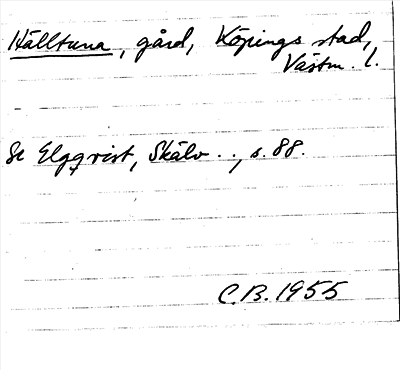 Hälltuna, gård, Köpings stad,
Västm. l.
Se Elgqvist, Skälv . ., s. 88.
C.B. 1955